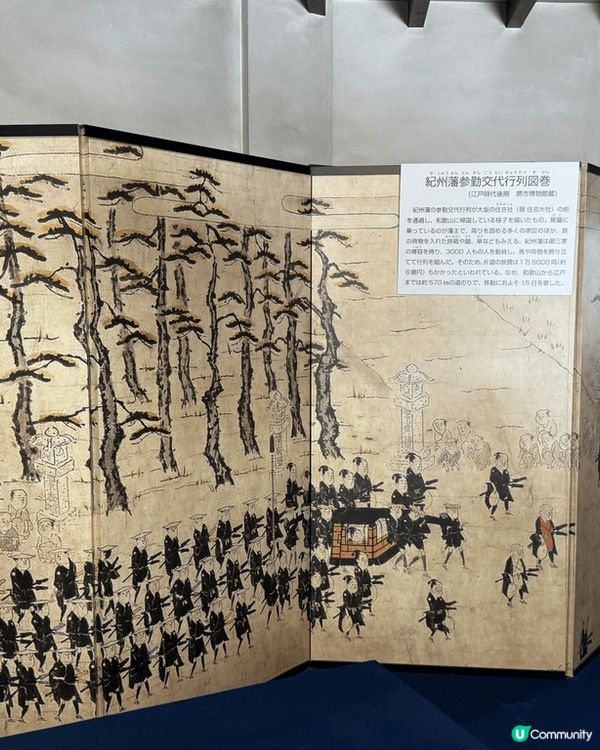 きしゅうはん さん きん こう たい ぎょうれつ ず かん
紀州藩参勤交代行列図巻
(江戸時代後期 堺市博物館蔵)
紀州藩の参勤交代行列が大坂の住吉社(現 住吉大社)の前
を通過し、和歌山に帰国している様子を描いたもの。駕籠に
乗っているのが藩主で、周りを固める多くの家臣のほか、旅
の荷物を入れた挟箱や鑓、傘などもみえる。紀州藩は御三家
の偉容を誇り、3000 人もの人を動員し、馬や荷物を誇り立
てて行列を組んだ。そのため、片道の旅費は1万5000両(約
6億円)もかかったといわれている。なお、和歌山から江戸
までは約570㎞の道のりで、移動におよそ15日を要した。
U Community